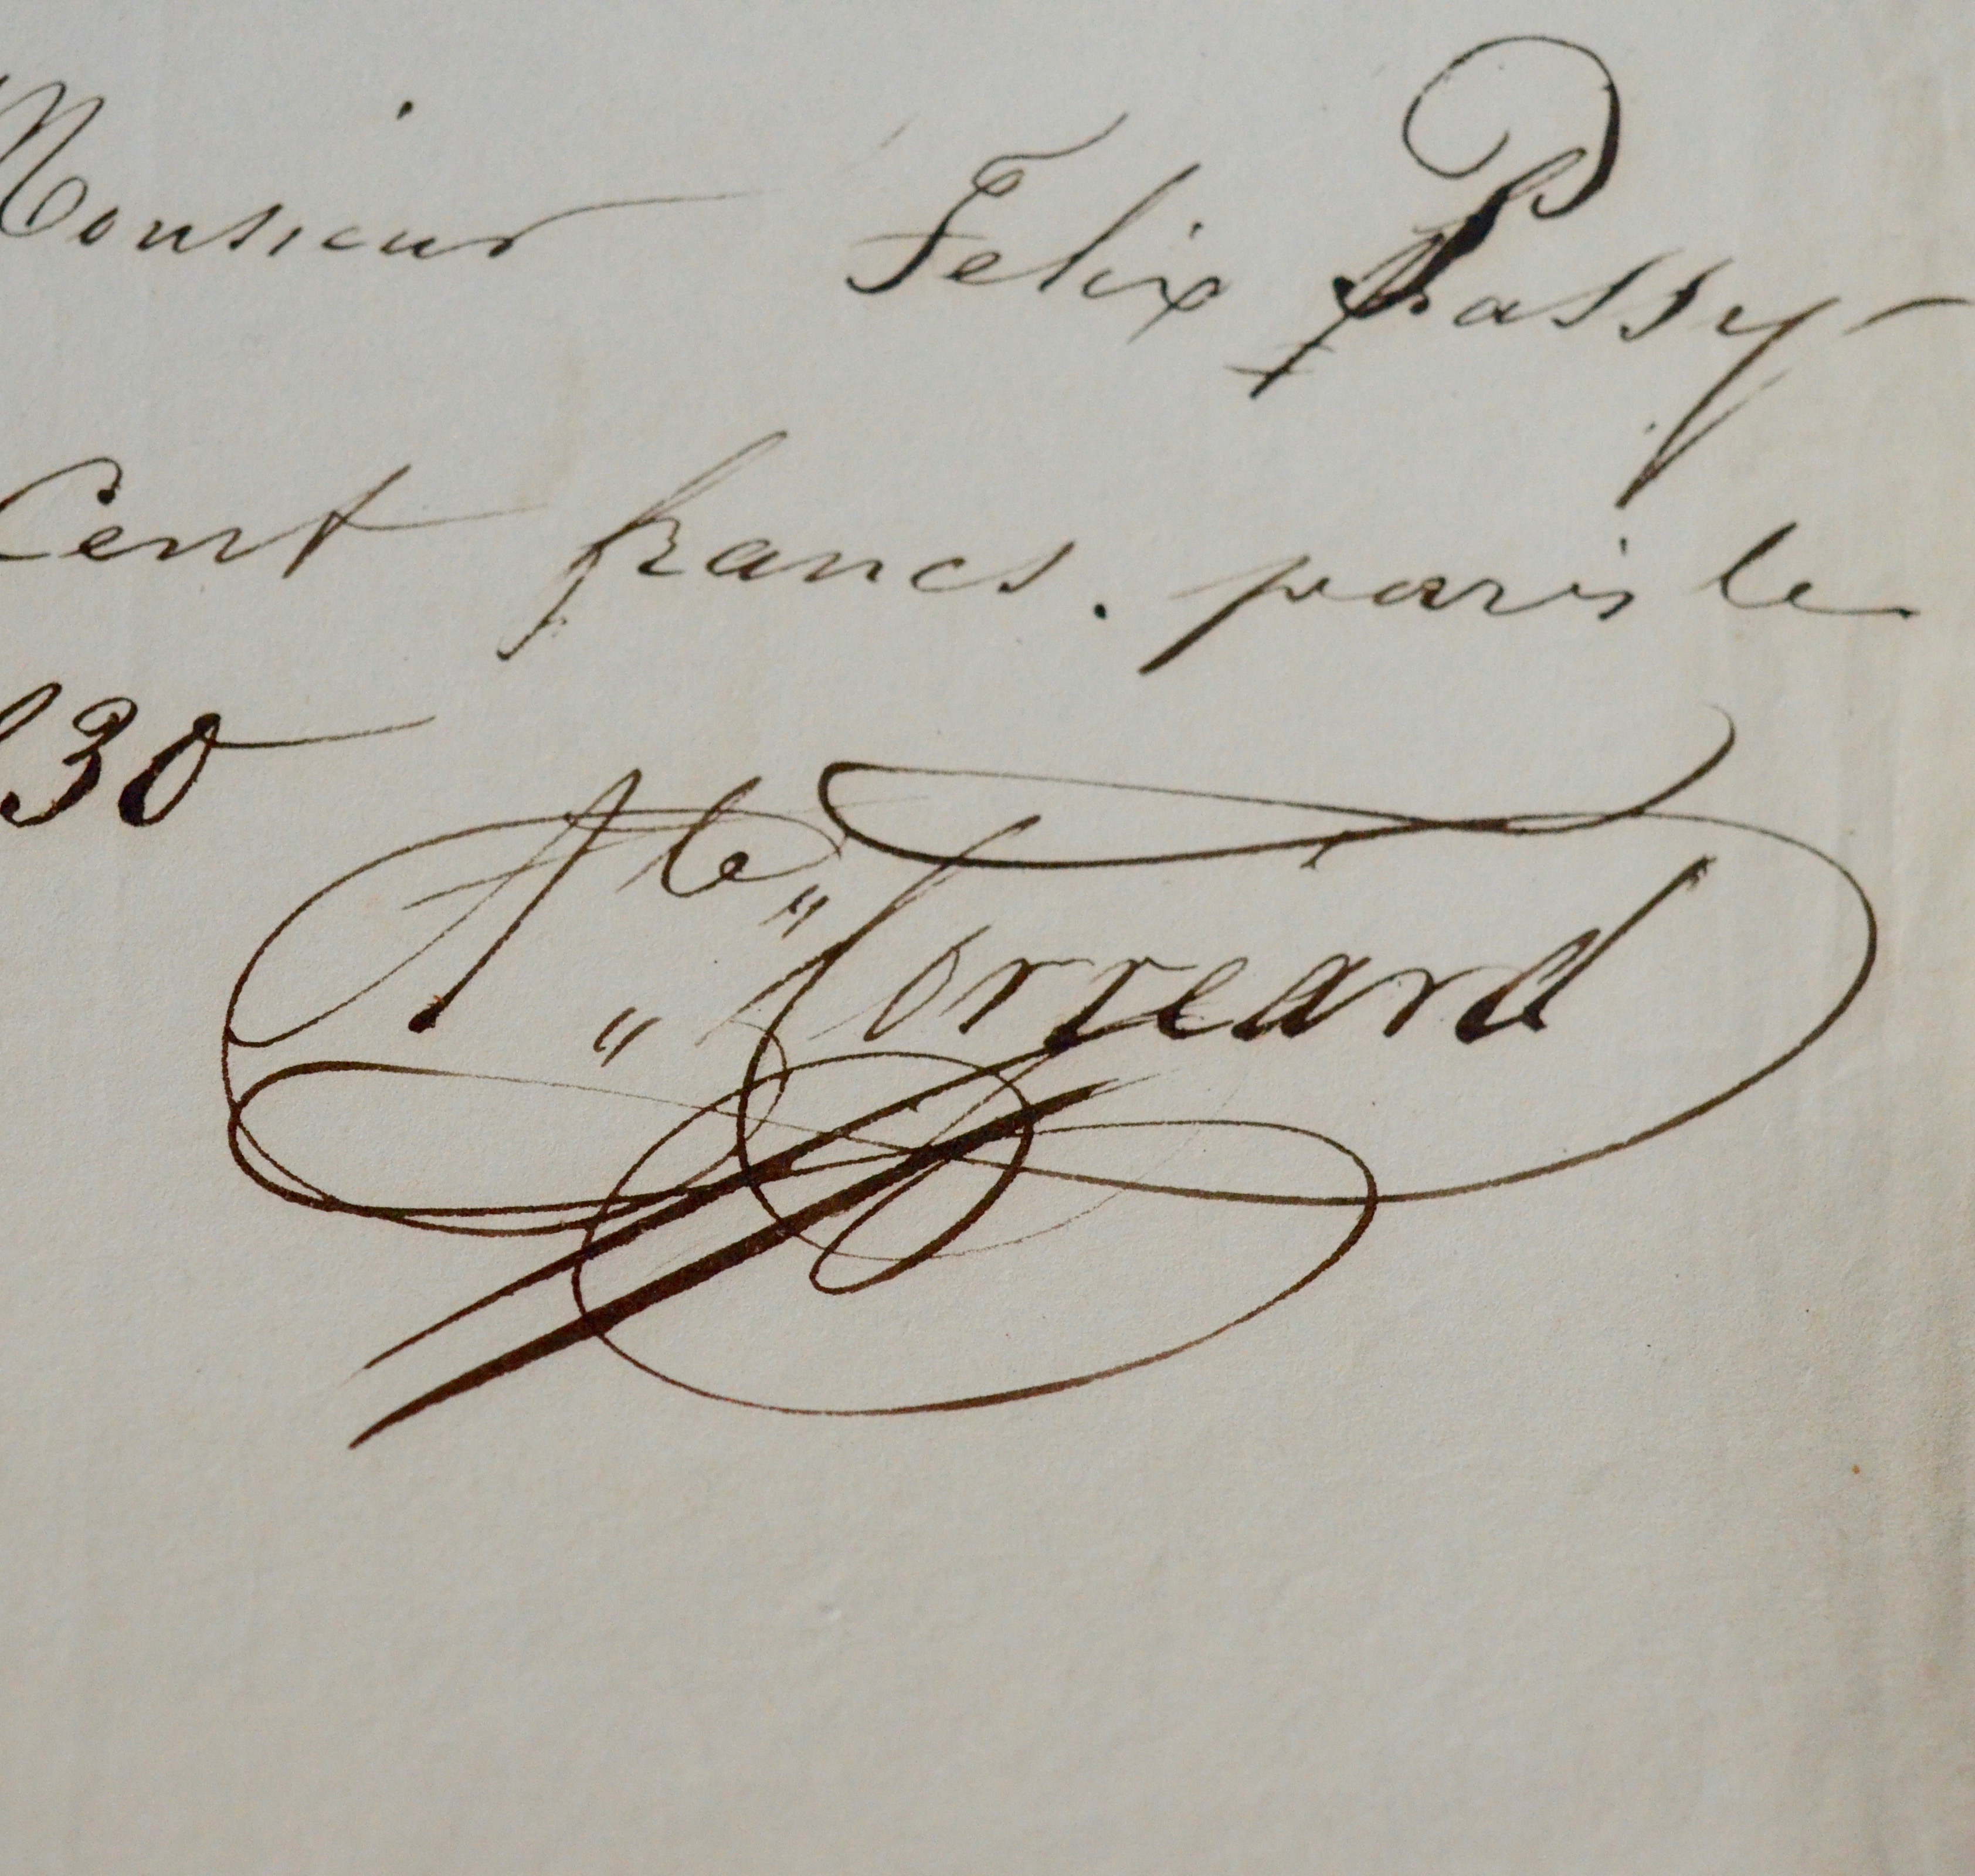 Monsieur Felix Passy
Cent francs. paris le
30
Ate Torreard